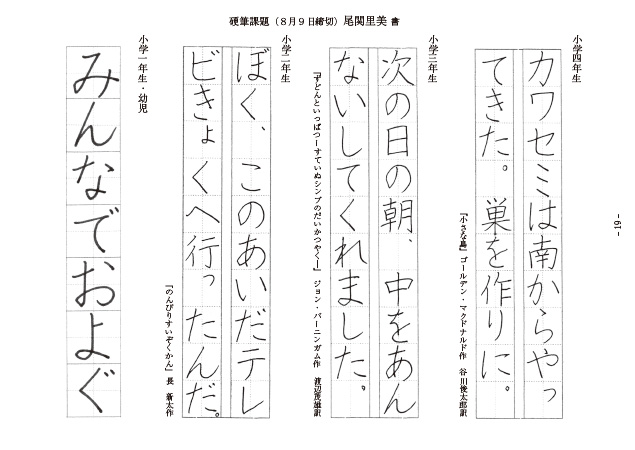 硬筆課題（８月９日締切）尾関里美 書
小学四年生
カワセミは南からやっ
てきた。巣を作りに。
『小さな島』ゴールデン・マクドナルド作 谷川俊太郎訳
小学三年生
次の日の朝、中をあん
ないしてくれました。
『ずどんといっぱつ―すていぬシンプのだいかつやく―』ジョン・バーニンガム作 渡辺茂雄訳
小学二年生
ぼく、このあいだテレ
ビきょくへ行ったんだ。
『のんびりすいぞくかん』長 新太作
小学一年生・幼児
みんなでおよぐ
- 19 -